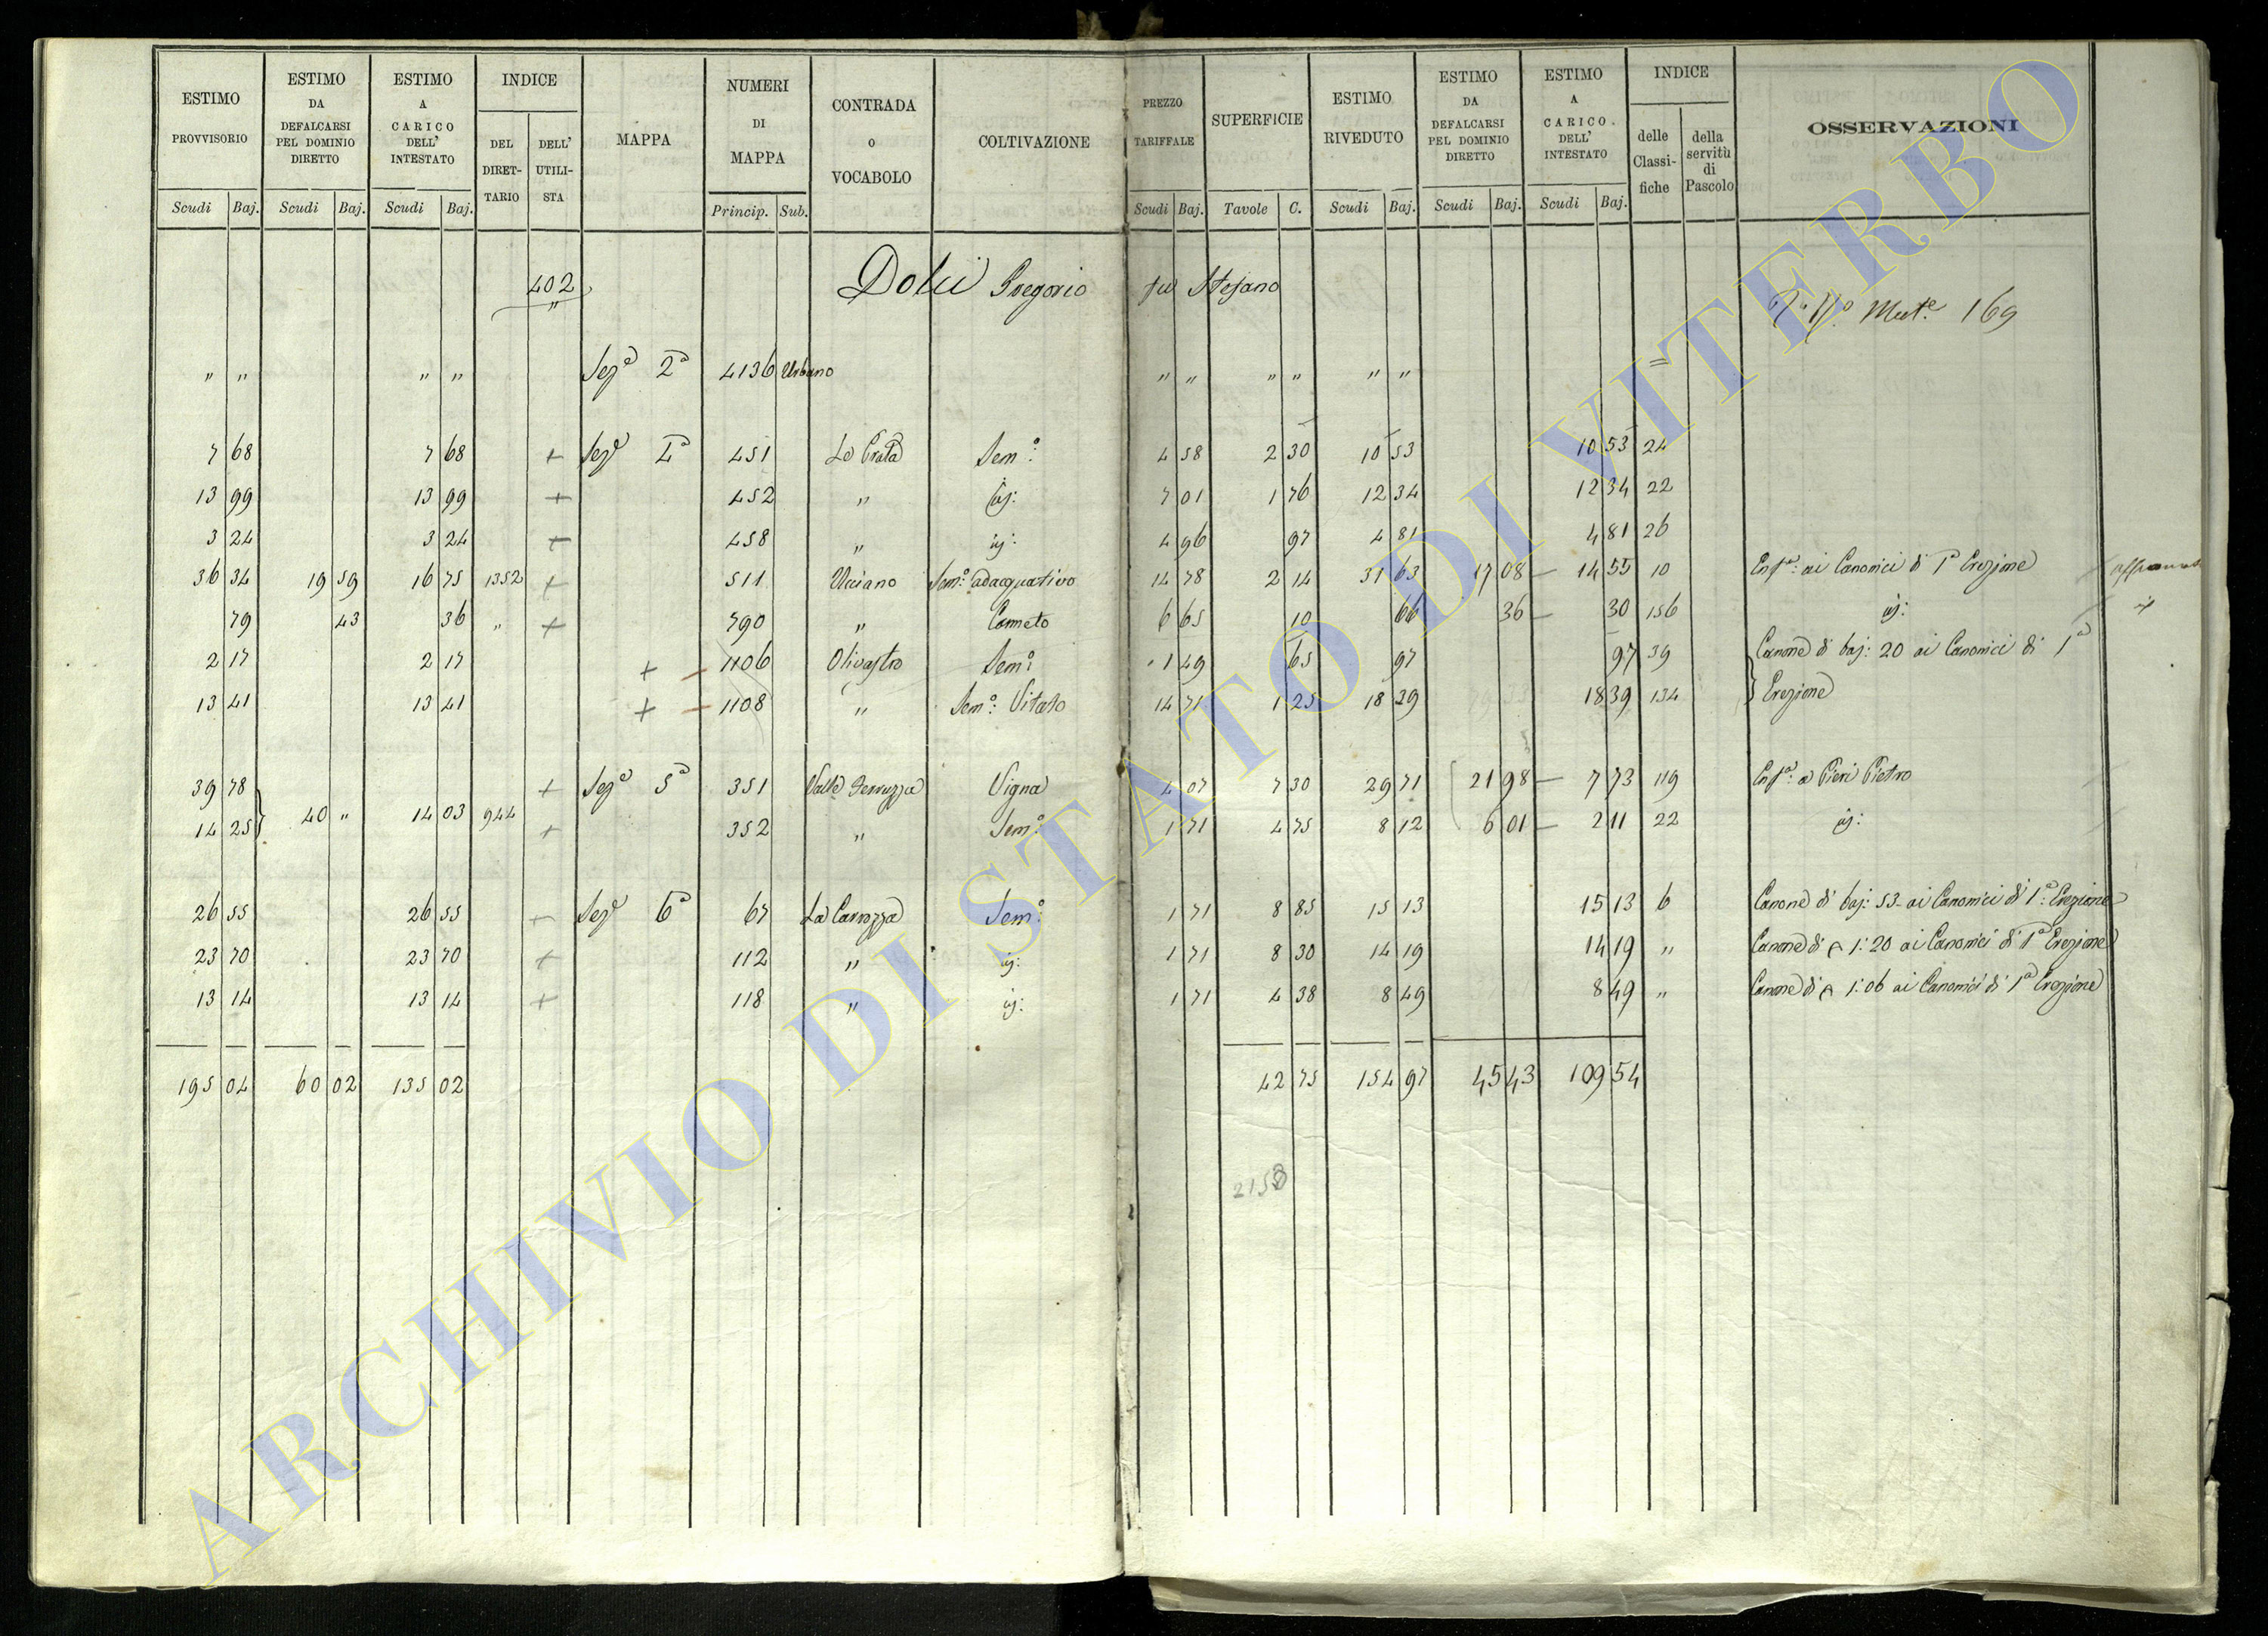 ESTIMO PROVVISORIO Scudi Baj. | ESTIMO DA DEFALCARSI PEL DOMINIO DIRETTO Scudi Baj. | ESTIMO A CARICO DELL' INTESTATO Scudi Baj. | INDICE DEL DIRET-TARIO | DELL' UTILI-STA | MAPPA | NUMERI DI MAPPA Princip. Sub. | CONTRADA O VOCABOLO | COLTIVAZIONE | PREZZO TARIFFALE Scudi Baj. | SUPERFICIE Tavole C. | ESTIMO RIVEDUTO Scudi Baj. | ESTIMO DA DEFALCARSI PEL DOMINIO DIRETTO Scudi Baj. | ESTIMO A CARICO DELL' INTESTATO Scudi Baj. | INDICE delle Classi-fiche | della servitù di Pascolo | OSSERVAZIONI
402 Dolci Gregorio fu Stefano
" Mut.e 169
" " " " Sez.e 2a 4136 Urbano " " " " " " =
7 68 7 68 + Sez.e 4a 451 Le Prata Sem.o 4 58 2 30 10 53 10 53 24
13 99 13 99 + 452 " id: 7 01 1 76 12 34 12 34 22
3 24 3 24 + 458 " id: 4 96 97 4 81 4 81 26
36 34 19 59 16 75 1352 + 511 Uciano Sem.o adacquativo 14 78 2 14 31 63 17 08 — 14 55 10 Enf.a: ai Canonici di 1a Erezione
79 43 36 " + 790 " Canneto 6 65 10 66 36 — 30 156 id:
2 17 2 17 + – 1106 Olivastro Sem.o 1 49 65 97 97 39 Canone di baj: 20 ai Canonici di 1a
13 41 13 41 + – 1108 " Sem.o: Vitato 14 71 1 25 18 39 18 39 134 } Erezione
39 78 + Sez.e 5a 351 Valle Vigna 4 07 7 30 29 71 21 98 — 7 73 119 Enf.a: a Pieri Pietro
14 25 } 40 " 14 03 944 + 352 " Sem.o 1 71 4 75 8 12 6 01 — 2 11 22 id:
26 55 26 55 + Sez.e 6a 67 La Carrozza Sem.o: 1 71 8 85 15 13 15 13 6 Canone di baj: 53 ai Canonici di 1a: Erezione
23 70 23 70 + 112 " id: 1 71 8 30 14 19 14 19 " Canone di 1:20 ai Canonici di 1a Erezione
13 14 13 14 + 118 " id: 1 71 4 38 8 49 8 49 " Canone di 1:06 ai Canonici di 1a Erezione
195 04 60 02 135 02 42 75 154 97 45 43 109 54
ARCHIVIO DI STATO DI VITERBO